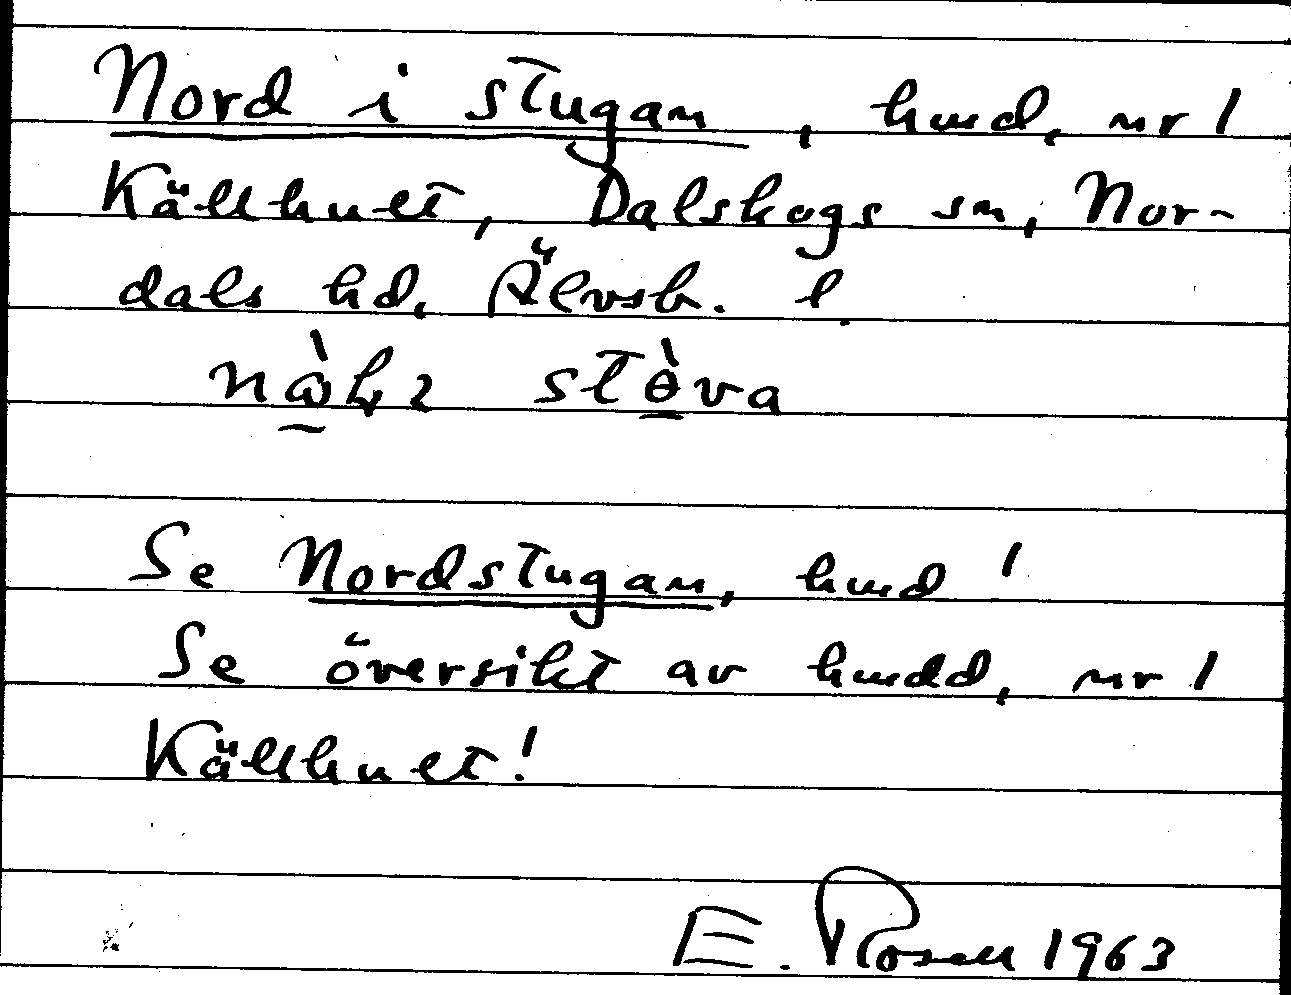 Nord i stugan, hmd, nr 1
Källhult, Dalskogs sn, Nor-
dals hd, Älvsb. l.
stɵ̠̀va
Se Nordstugan, hmd!
Se översikt av hmdd, nr 1
Källhult!
E. Rosell 1963